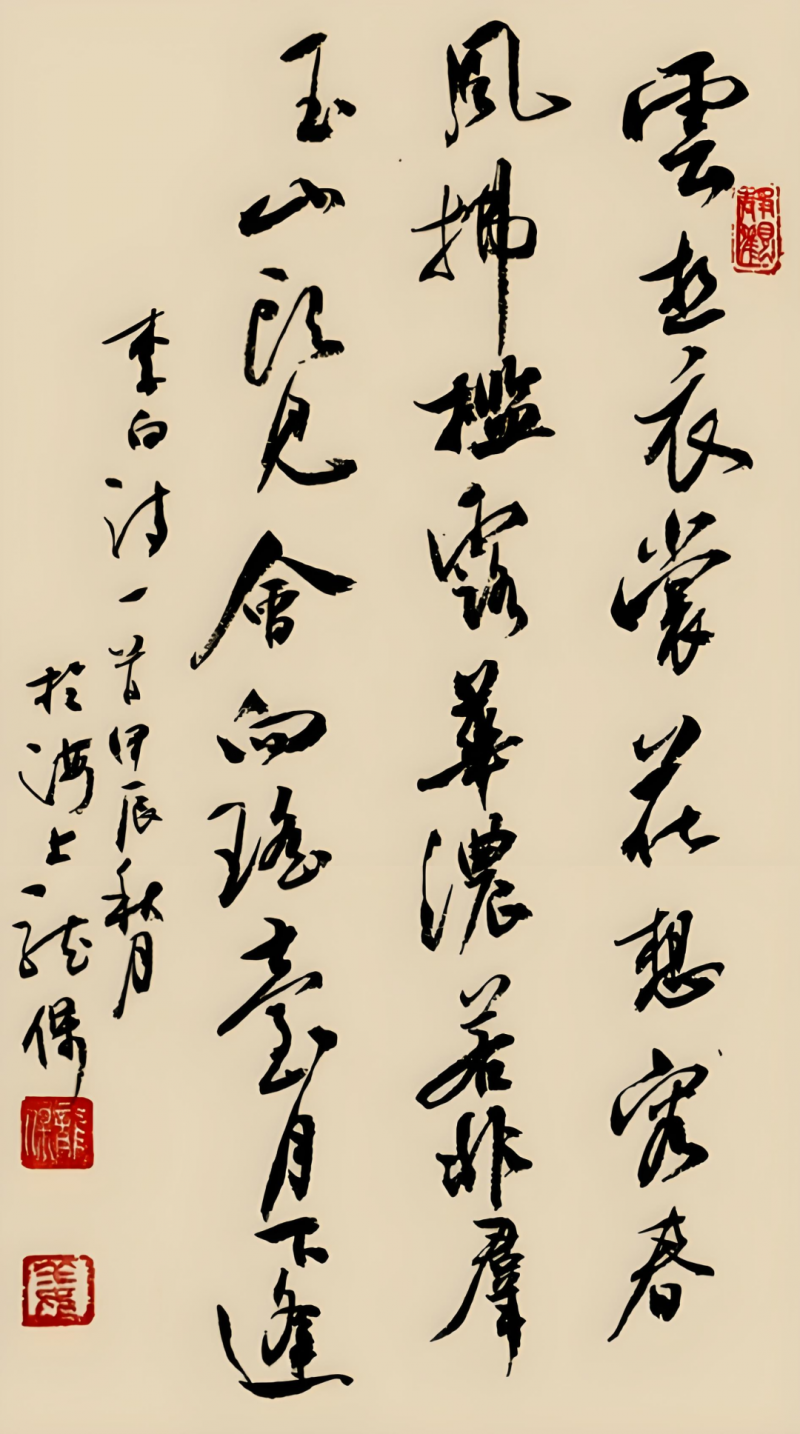 雲想衣裳花想容春
風拂檻露華濃若非群
玉山頭見會向瑤臺月下逢
李白詩一首甲辰秋月
於海上龍保
靜觀
龍保